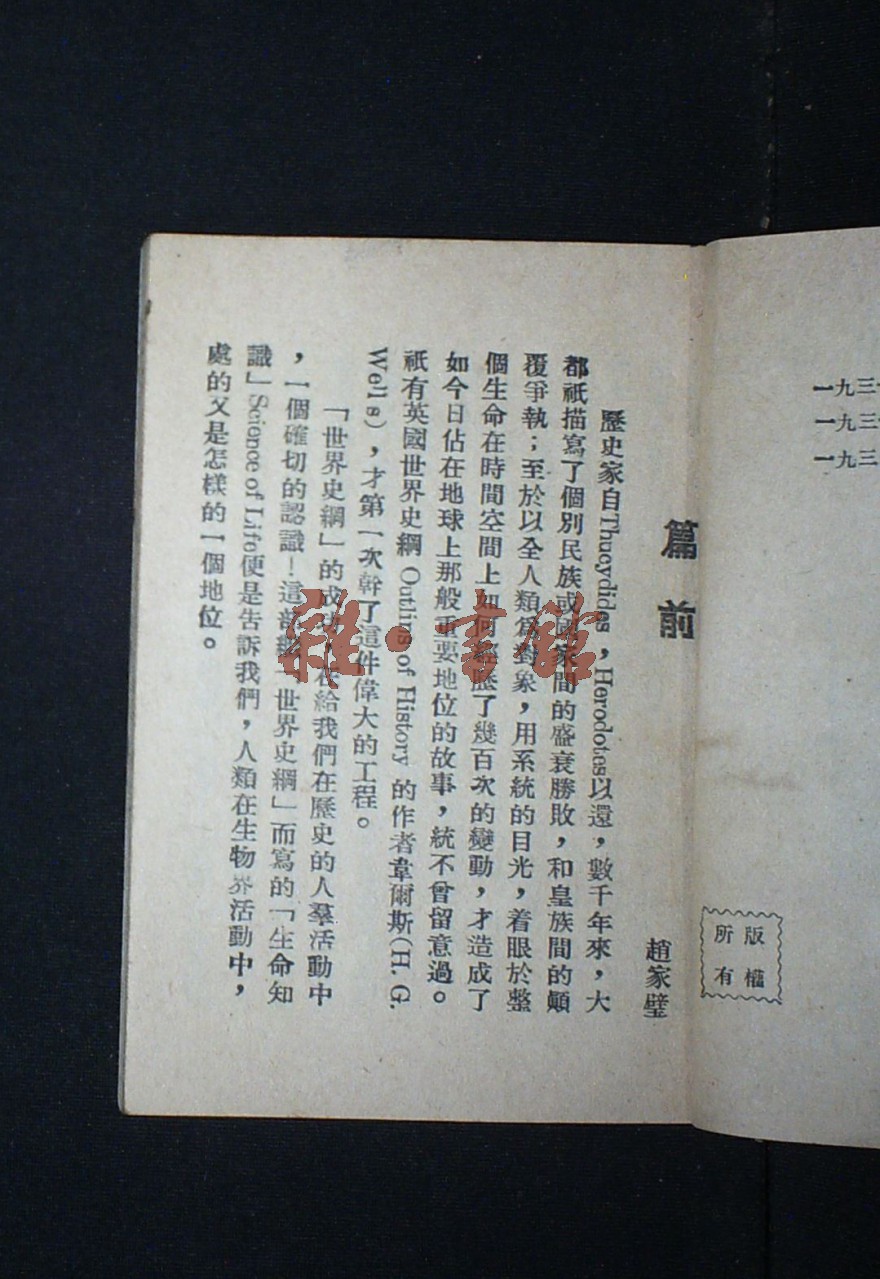 篇前
趙家璧
歷史家自Thucydides，Herodotes以還，數千年來，大
都祇描寫了個別民族或國家間的盛衰勝敗，和皇族間的顚
覆爭執；至於以全人類爲對象，用系統的目光，着眼於整
個生命在時間空間上如何經歷了幾百次的變動，才造成了
如今日佔在地球上那般重要地位的故事，統不曾留意過。
祇有英國世界史綱 Outline of History 的作者韋爾斯(H. G.
Wells)，才第一次幹了這件偉大的工程。
「世界史綱」的成功，在給我們在歷史的人羣活動中
，一個確切的認識！這部繼「世界史綱」而寫的「生命知
識」Science of Life便是告訴我們，人類在生物界活動中，
處的又是怎樣的一個地位。
雜·書館
一九三
一九三
一九三
版權
所有